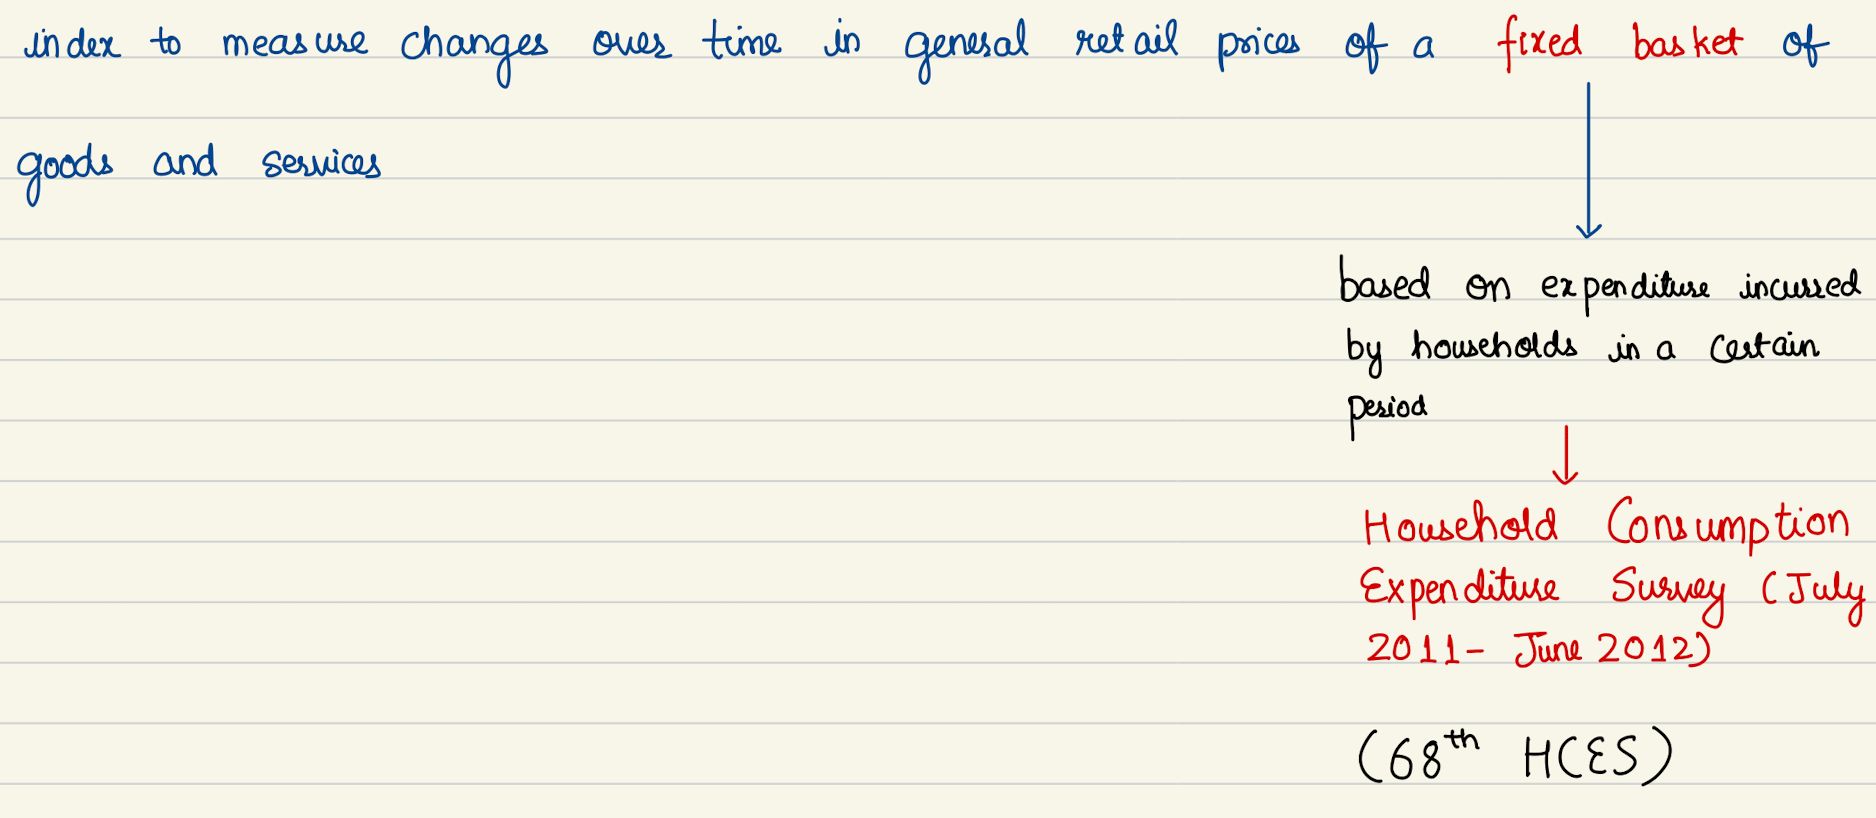 index to measure changes over time in general retail prices of a fixed basket of
goods and services
based on expenditure incurred
by households in a certain
period
Household Consumption
Expenditure Survey (July
2011- June 2012)
(68th HCES)